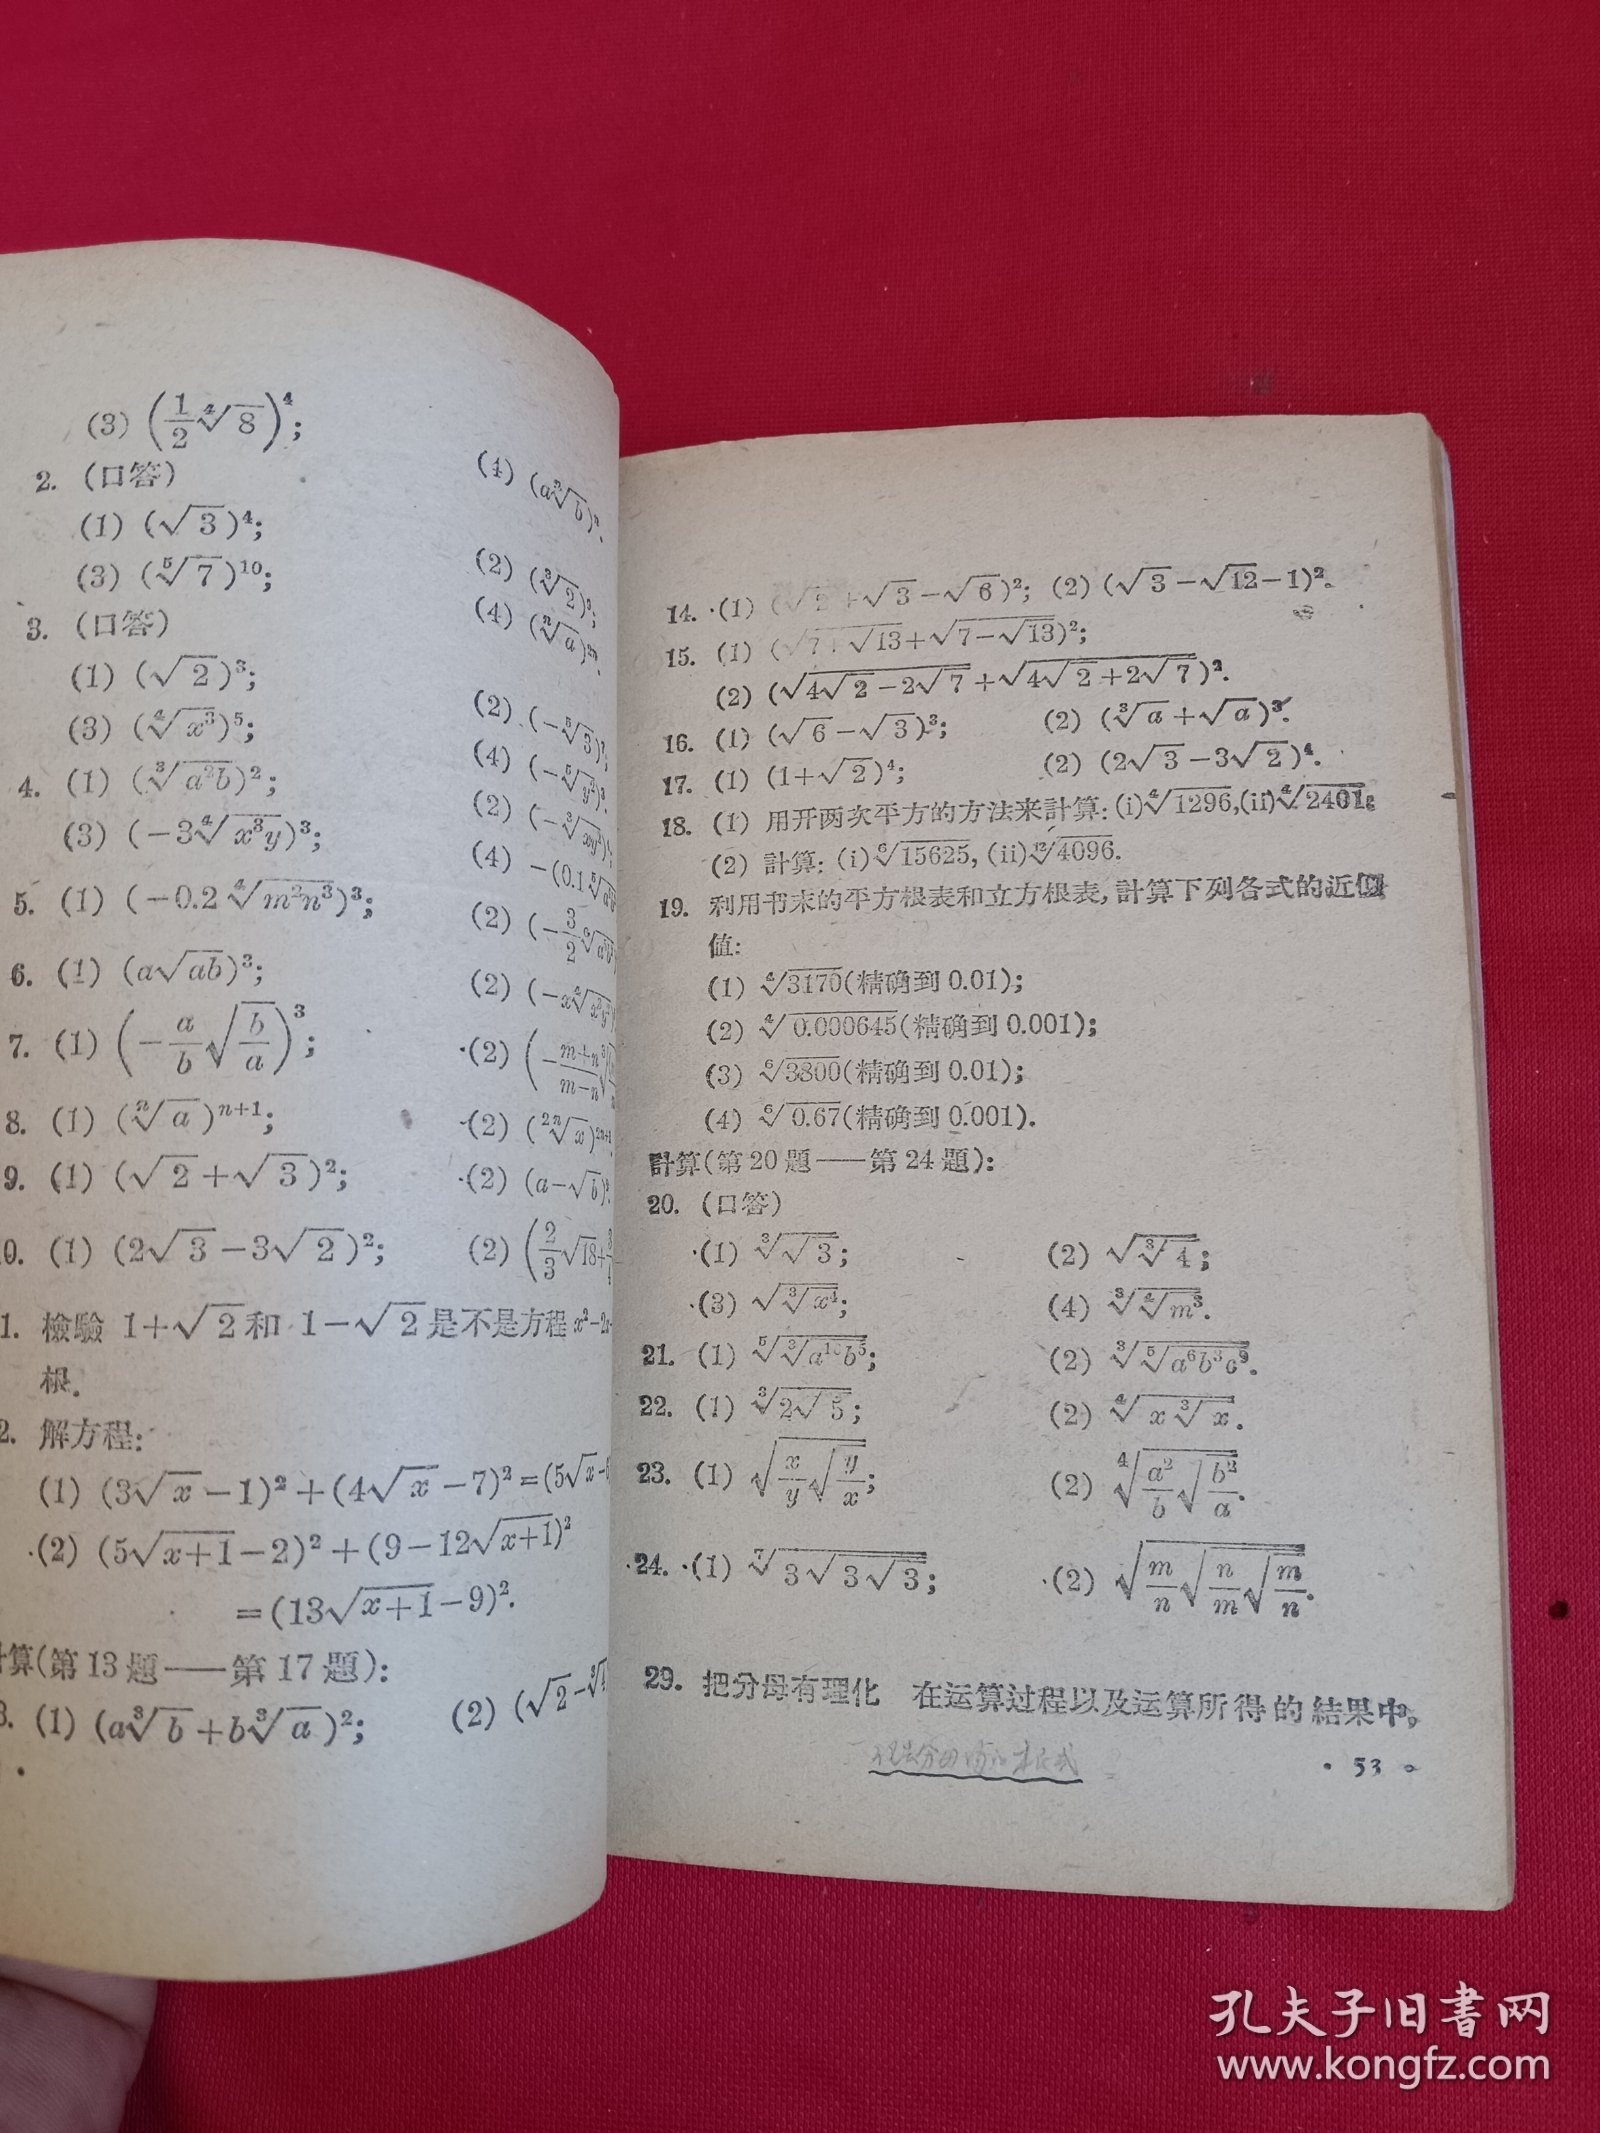 (3) (1/2 ∜8)⁴;
(4) (aⁿ√b)ⁿ.
2. (口答)
(1) (√3)⁴;
(2) (∛2)⁹;
(3) (⁵√7)¹⁰;
(4) (ⁿ√a)²ⁿ.
3. (口答)
(1) (√2)³;
(2) (−⁵√3)⁷;
(3) (∜x³)⁵;
4. (1) (∛a²b)²;
(3) (−3∜x³y)³;
5. (1) (−0.2∜m²n³)³;
6. (1) (a√ab)³;
7. (1) (−a/b √b/a)³;
8. (1) (ⁿ√a)ⁿ⁺¹;
(2) (²ⁿ√x)²ⁿ⁺¹
9. (1) (√2+√3)²;
(2) (a−√b)².
0. (1) (2√3−3√2)²;
(2) (2/3 √18+
1. 檢驗 1+√2和 1−√2是不是方程 x²−2x
根.
2. 解方程:
(1) (3√x−1)²+(4√x−7)²=(5√x−6
(2) (5√x+1−2)²+(9−12√x+1)²
=(13√x+1−9)².
算(第13題——第17題):
3. (1) (a∛b+b∛a)²;
(2) (√2−∛
14. (1) (√2+√3−√6)²; (2) (√3−√12−1)².
15. (1) (√7+√13+√7−√13)²;
(2) (√4√2−2√7+√4√2+2√7)².
16. (1) (√6−√3)³; (2) (∛a+√a)³.
17. (1) (1+√2)⁴; (2) (2√3−3√2)⁴.
18. (1) 用开两次平方的方法来計算: (i)∜1296,(ii)∜2401;
(2) 計算: (i)⁶√15625, (ii)¹²√4096.
19. 利用书末的平方根表和立方根表,計算下列各式的近似
值:
(1) ∜3170(精确到0.01);
(2) ∜0.000645(精确到0.001);
(3) ⁶√3800(精确到0.01);
(4) ⁶√0.67(精确到0.001).
計算(第20題——第24題):
20. (口答)
(1) ∛√3; (2) √∛4;
(3) √∛x⁴; (4) ∛∜m³.
21. (1) ⁵√∛a¹⁰b⁵; (2) ∛⁵√a⁶b³c⁹.
22. (1) ∛2√5; (2) ∜x∛x.
23. (1) √x/y √y/x; (2) ∜a²/b √b²/a.
24. (1) ⁷√3√3√3; (2) √m/n √n/m √m/n.
29. 把分母有理化 在运算过程以及运算所得的結果中,
· 53 ·
孔夫子旧書网
www.kongfz.com